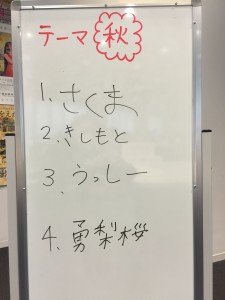 テーマ 秋
1. さくま
2. きしもと
3. うっしー
4. 勇梨桜